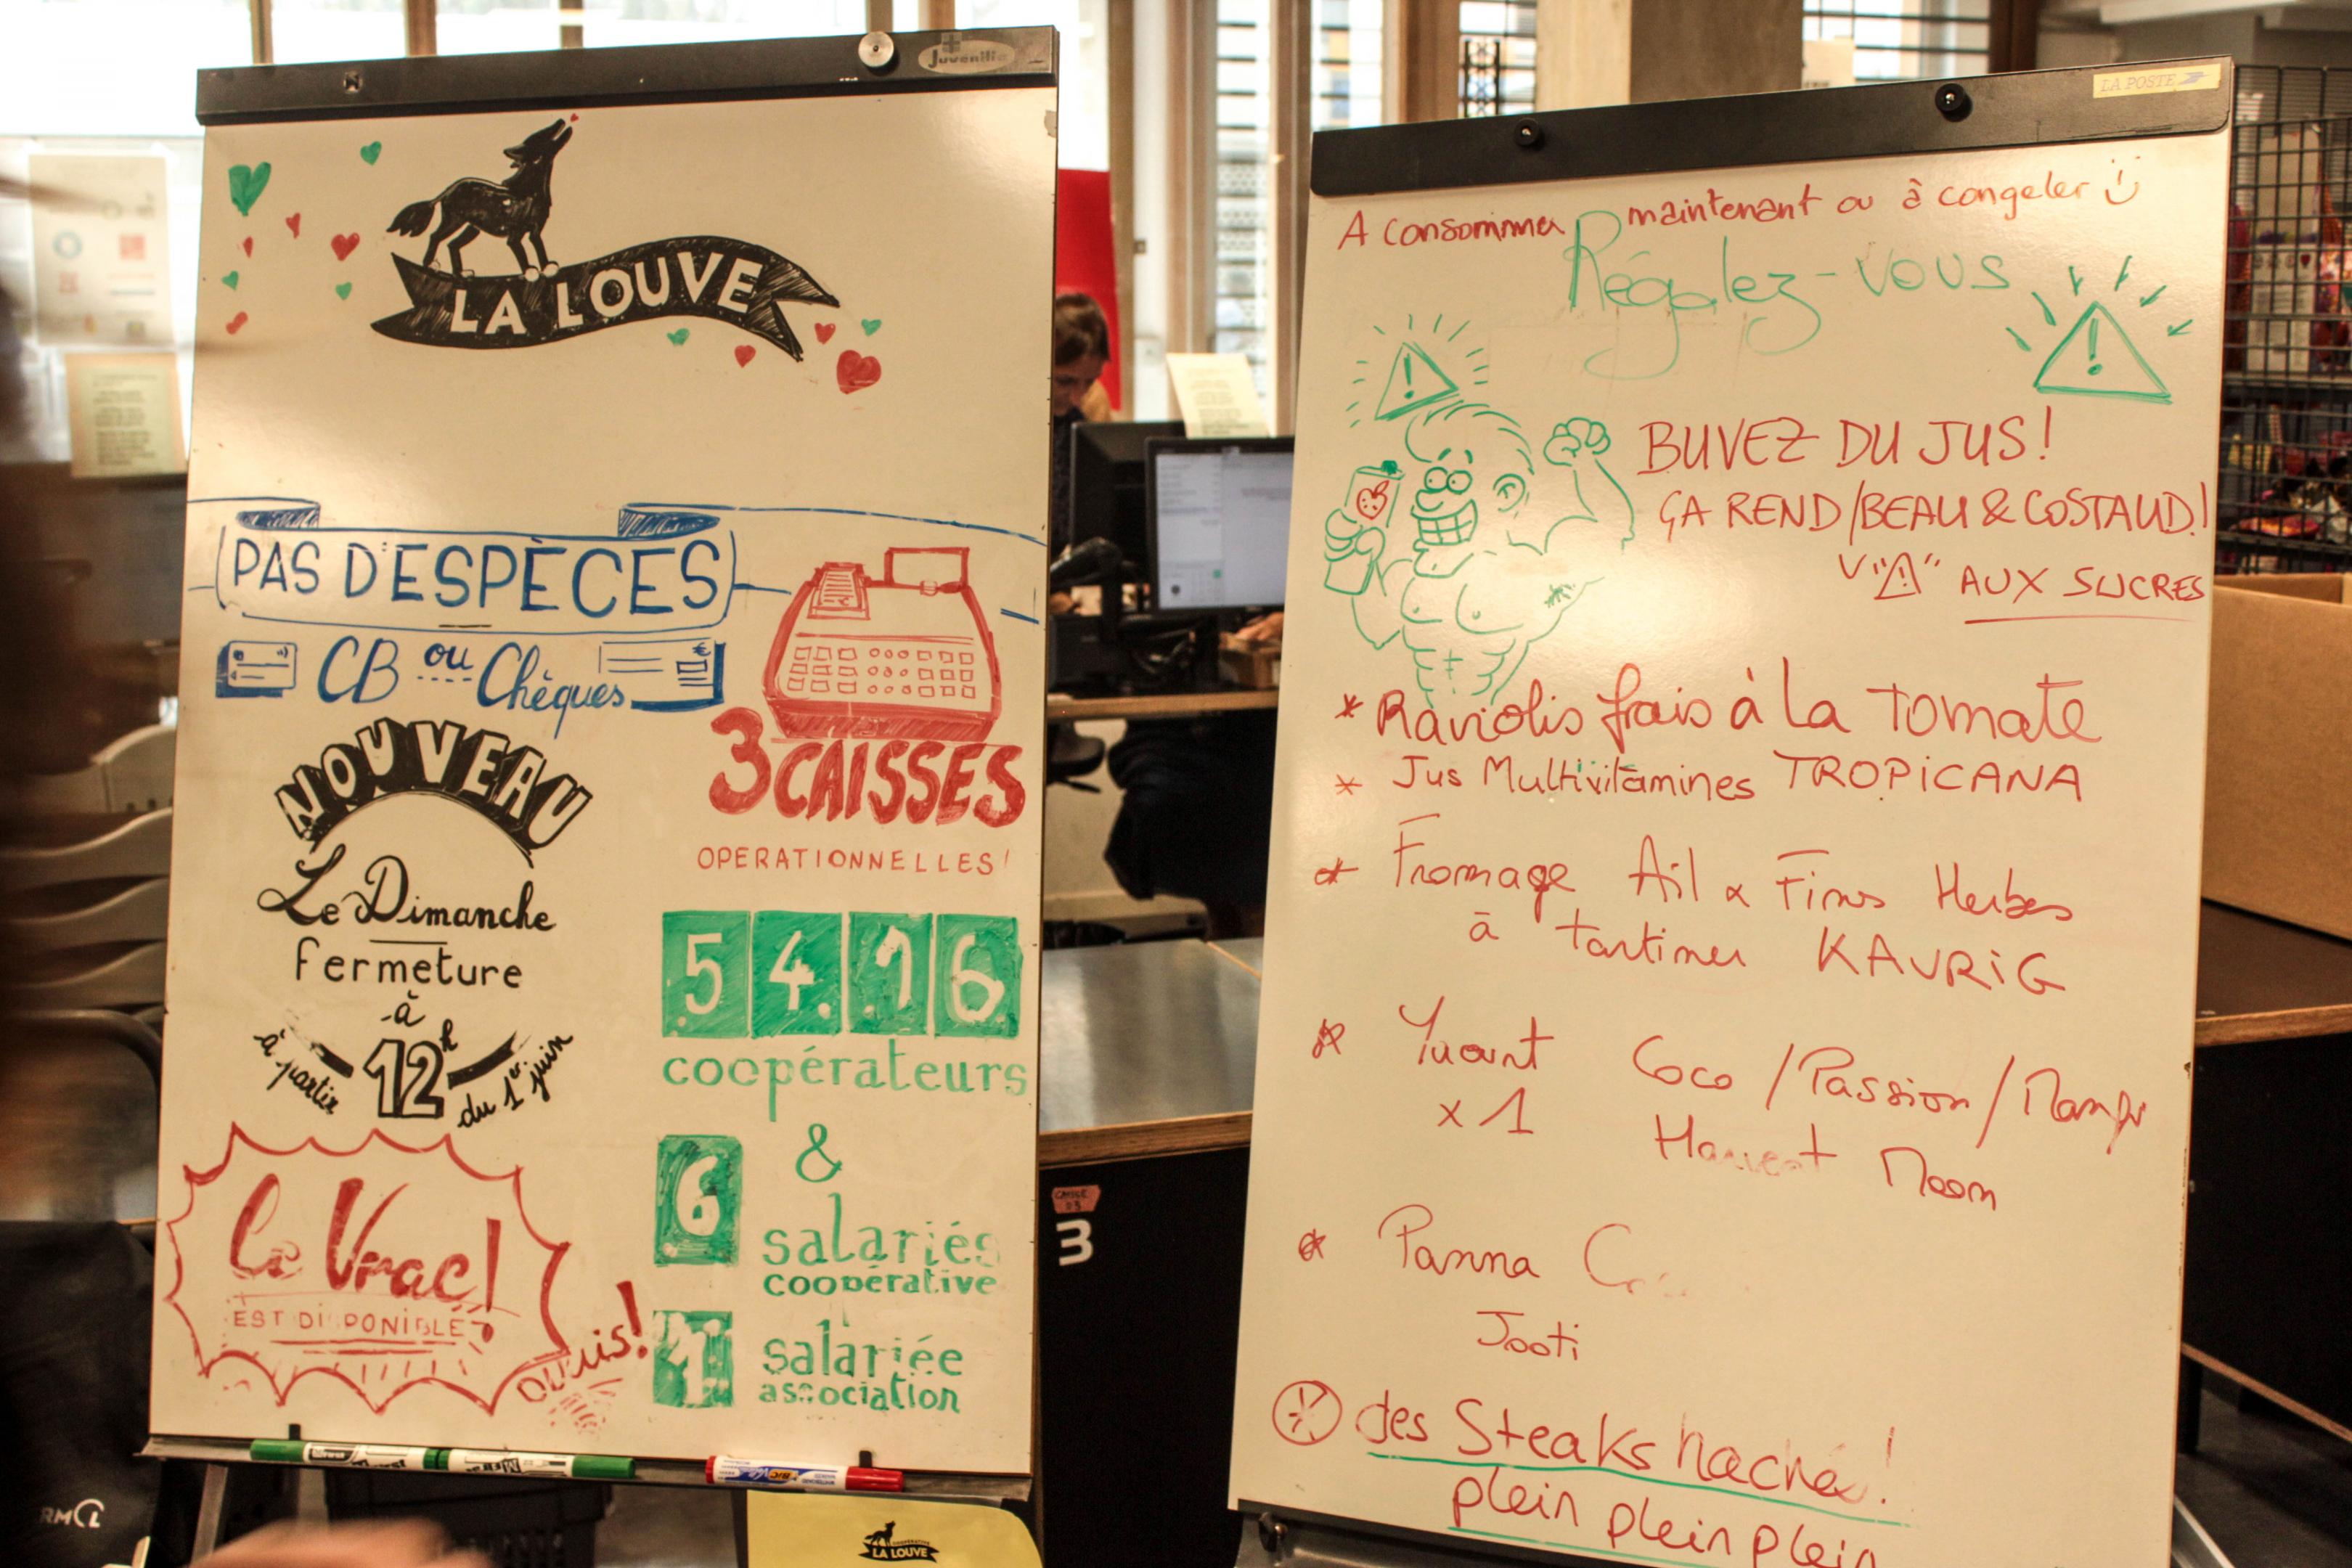 Juvenilia
LA LOUVE
PAS D'ESPÈCES
CB ou Chèques
3 CAISSES
OPERATIONNELLES!
NOUVEAU
Le Dimanche
fermeture
à
12h
à partir
du 1er juin
5416
coopérateurs
&
6 salariés
coopérative
1 salariée
association
Le Vrac!
EST DISPONIBLE
BIC
LA LOUVE
3
LA POSTE
A consommer maintenant ou à congeler
Régalez-vous
BUVEZ DU JUS!
ÇA REND BEAU & COSTAUD!
AUX SUCRES
* Raviolis frais à la tomate
* Jus Multivitamines TROPICANA
* Fromage Ail & Fines Herbes
à tartiner KAVRIG
* Yaourt Coco / Passion /
x 1 Harvest Moon
* Panna
Jooti
* des Steaks haché!
plein plein plein